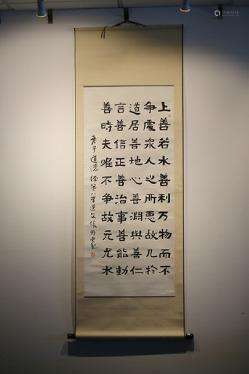 上善若水善利万物而不
争處衆人之所惡故几於
道居善地心善淵與善仁
言善信正善治事善能動
善時夫唯不争故无尤水